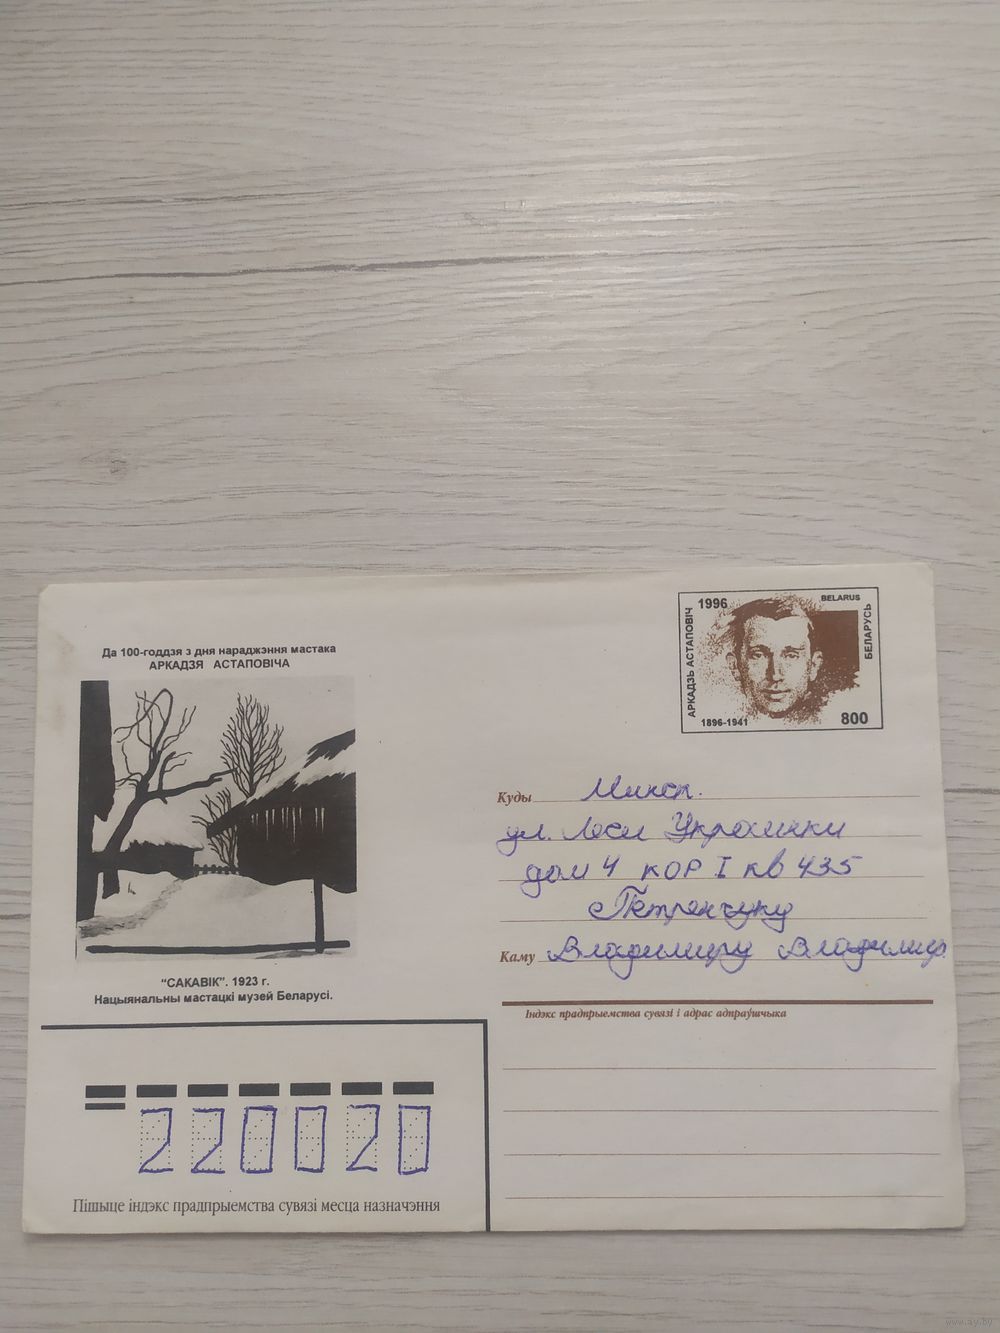 Да 100-годдзя з дня нараджэння мастака
АРКАДЗЯ АСТАПОВІЧА
"САКАВІК". 1923 г.
Нацыянальны мастацкі музей Беларусі.
1996
BELARUS
АРКАДЗЬ АСТАПОВІЧ
БЕЛАРУСЬ
1896-1941
800
Куды Минск.
ул. Леси Украинки
дом 4 кор I кв 435
Петранчуку
Каму Владимиру Владимир.
Індэкс прадпрыемства сувязі і адрас адпраўшчыка
220020
Пішыце індэкс прадпрыемства сувязі месца назначэння
www.ay.by